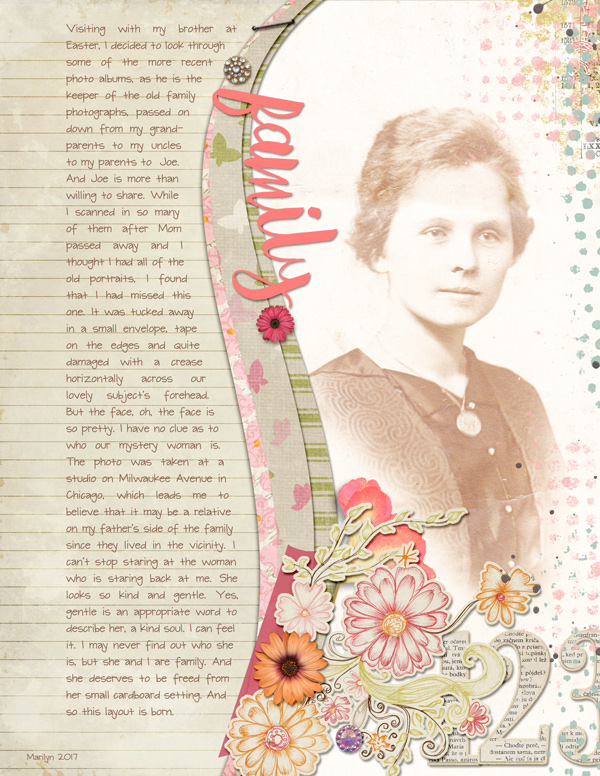 Visiting with my brother at
Easter, I decided to look through
some of the more recent
photo albums, as he is the
keeper of the old family
photographs, passed on
down from my grand-
parents to my uncles
to my parents to Joe.
And Joe is more than
willing to share. While
I scanned in so many
of them after Mom
passed away and I
thought I had all of the
old portraits, I found
that I had missed this
one. It was tucked away
in a small envelope, tape
on the edges and quite
damaged with a crease
horizontally across our
lovely subject's forehead.
But the face, oh, the face is
so pretty. I have no clue as to
who our mystery woman is.
The photo was taken at a
studio on Milwaukee Avenue in
Chicago, which leads me to
believe that it may be a relative
on my father's side of the family
since they lived in the vicinity. I
can't stop staring at the woman
who is staring back at me. She
looks so kind and gentle. Yes,
gentle is an appropriate word to
describe her, a kind soul. I can feel
it. I may never find out who she
is, but she and I are family. And
she deserves to be freed from
her small cardboard setting. And
so this layout is born.
Marilyn 2017
family
23